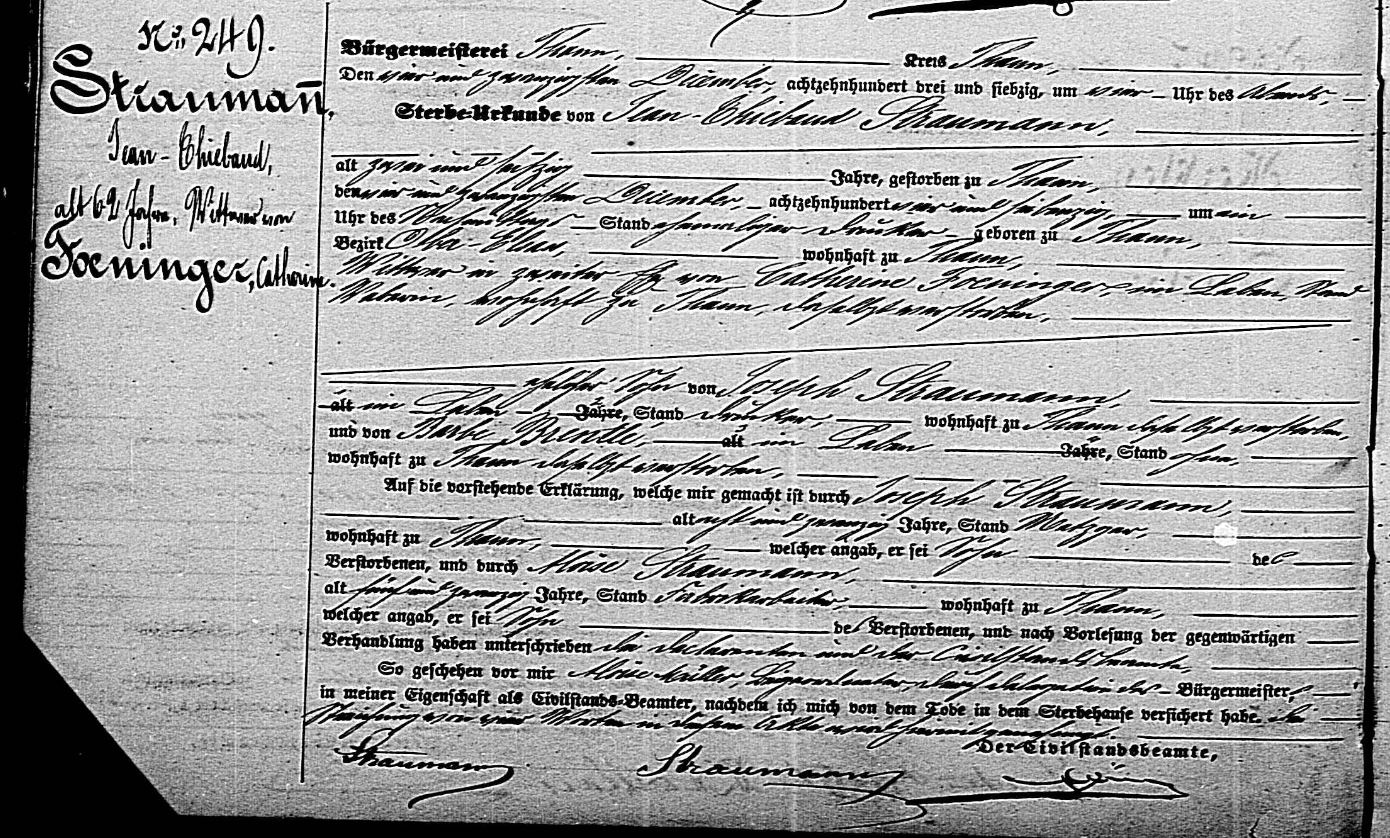 No. 249.
Straumañ,
Jean-Thiebaud,
alt 62 Jahre, Wittwer von
Foeninger, Catherine.
Bürgermeisterei Thann, Kreis Thann,
Den vier und zwanzigsten Dicember, achtzehnhundert drei und siebzig, um vier Uhr des Abends,
Sterbe-Urkunde von Jean-Thiebaud Straumann,
alt zwei und sechzig Jahre, gestorben zu Thann,
den vier und zwanzigsten Dicember, achtzehnhundert und siebenzig, um ein
Uhr des Stand ehemaliger Drucker geboren zu Thann,
Bezirk Ober-Elsass, wohnhaft zu Thann,
Wittwer in zweiter Ehe von Catherine Foeninger, im Leben, Stand
wohnhaft zu Thann, daselbst verstorben,
ehelicher Sohn von Joseph Straumann
alt im Leben Jahre, Stand Drucker, wohnhaft zu Thann daselbst verstorben,
und von Barbe Brendle, alt im Leben Jahre, Stand ohne,
wohnhaft zu Thann daselbst verstorben,
Auf die vorstehende Erklärung, welche mir gemacht ist durch Joseph Straumann,
alt acht und zwanzig Jahre, Stand Metzger,
wohnhaft zu Thann, welcher angab, er sei Sohn des
Verstorbenen, und durch Moïse Straumann,
alt fünf und zwanzig Jahre, Stand Fabrikarbeiter wohnhaft zu Thann,
welcher angab, er sei Sohn des Verstorbenen, und nach Vorlesung der gegenwärtigen
Verhandlung haben unterschrieben die Declaranten und der Civilstandsbeamte
So geschehen vor mir Moïse Müller, Beigeordneter, durch Delegation des Bürgermeisters
in meiner Eigenschaft als Civilstands-Beamter, nachdem ich mich von dem Tode in dem Sterbehause versichert habe. Die
Streichung von vier Worten in diesem Akte
Der Civilstandsbeamte,
Straumann Straumann